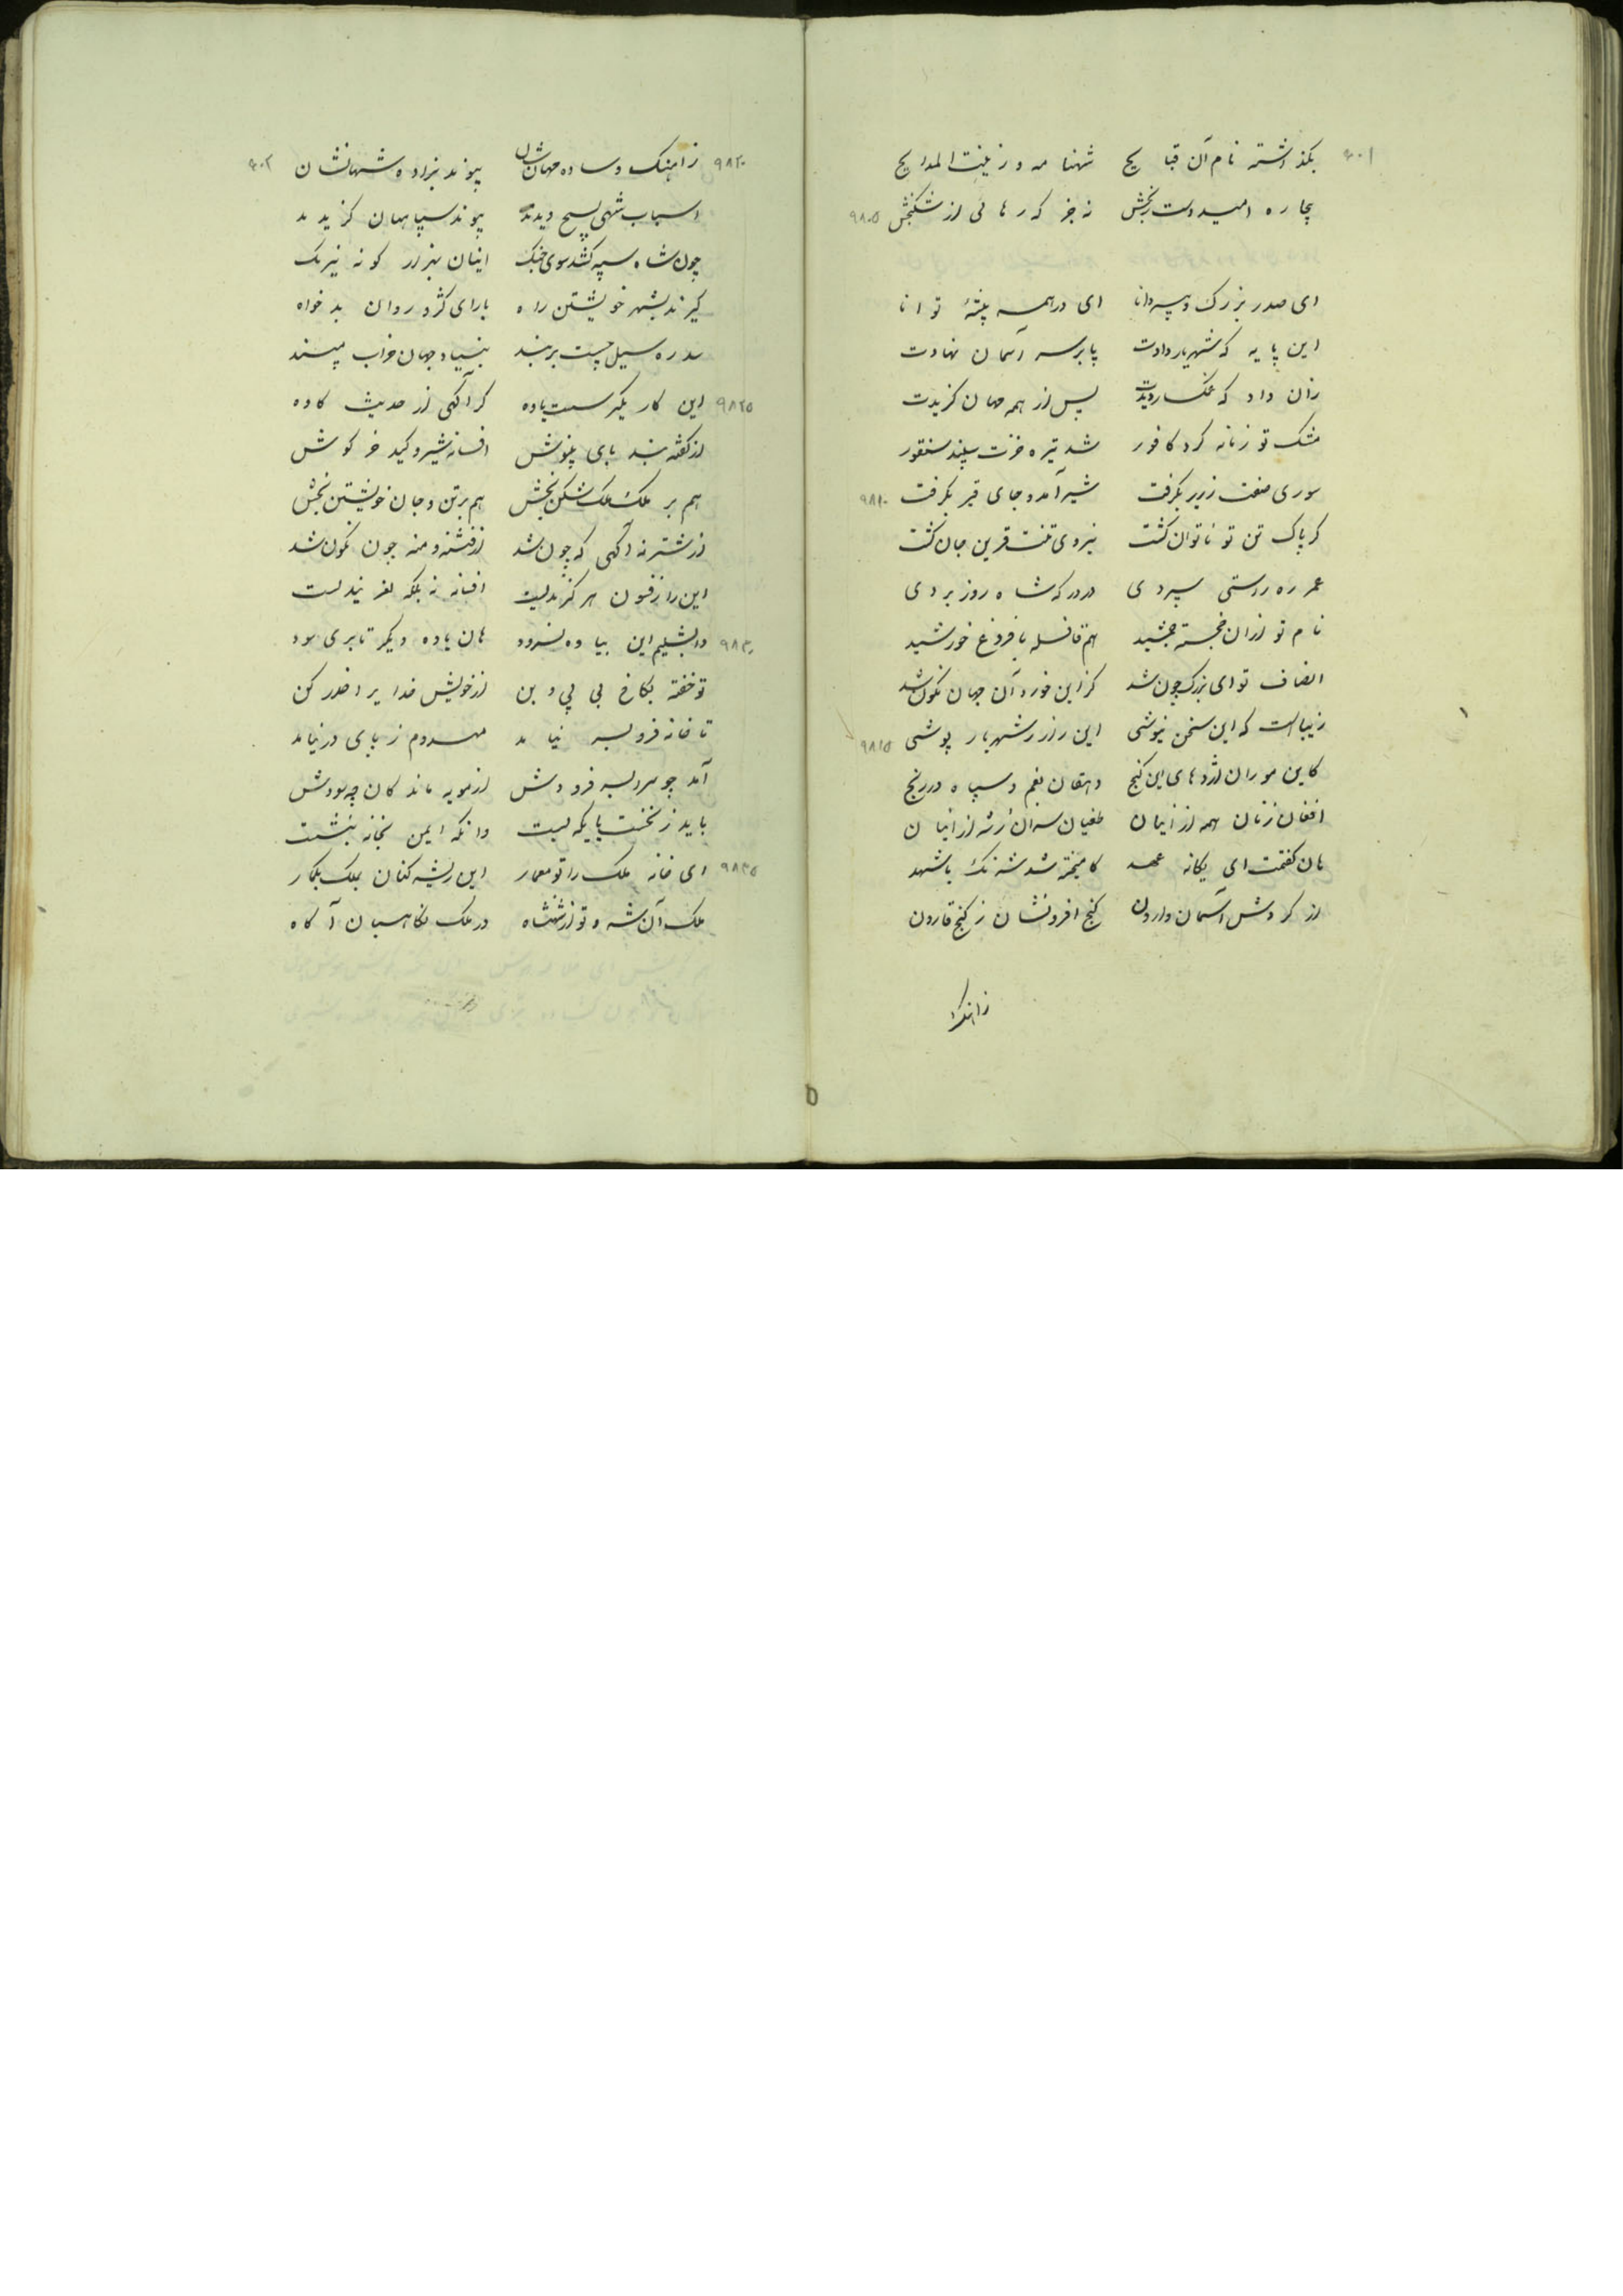 ۹۰۱
بگذاشته نام آن قبایح شهنامه و زینت المدایح
بیچاره امیدوست رنجش نه جز که رهائی از شکنجش ۹۸۰۵
ای صدر بزرگ و پیر دانا ای در همه پیشهٔ توانا
این پایه که شهریار دادت پا بر سر آسمان نهادت
زان داد که غمگسار دیدت پس از همه جهان گزیدت
مشک تو زمانه کرد کافور شد تیره خزت سپید سنقور
سوری صفت زریر بگرفت شیر آمد و جای قیر بگرفت ۹۸۱۰
گر پاک تن تو ناتوان گشت نیروی تنت قرین جان گشت
عمر ره راستی سپردی در درگه شاه روز بردی
نام تو ازان خجسته جمشید هم قافله با فروغ خورشید
انصاف تو ای بزرگ چون شد کز این خور و آن جهان نگون شد
زیبا است که این سخن نیوشی این راز ز شهریار پوشی ۹۸۱۵
کاین موران اژدهای این گنج دهقان بغم و سپاه در رنج
افغان زنان همه از اینان طغیان سران شه از اینان
هان گفتمت ای یگانه عهد کامیخته شد شرنگ با شهد
از گردش آسمان وارون گنج افزونشان ز گنج قارون
زاهنگ
۹۰۲
۹۸۲۰ زاهنگ و ساده مهانشان پیوند بزاده شهانشان
اسباب شهی بسیج دیدند پیوند سپاهیان گزیدند
چون شاه سپه کشد سوی جنگ اینان بهزار گونه نیرنگ
گیرند بشهر خویشتن راه با رای کژ و روان بدخواه
سد ره سیل چیست بر بند بنیاد جهان خراب مپسند
۹۸۲۵ این کار مگیر سست یاده گر آگهی از حدیث کاوه
از گفته بند بای بنیوش افسانه شیر و کید خرگوش
هم بر ملک ملک شکن بخش هم بر تن و جان خویشتن بخش
از شتربه آگهی که چون شد از فتنه دمنه چون نگون شد
این را ز فسون هر گز ند لیست افسانه نه بلکه نغز پندیست
۹۸۳۰ دابشلیم این بیاوه نسرود هان یاوه دیگر تا بری سود
تو خفته بکاخ بی پی و بن از خویش خدایرا حذر کن
تا خانه فرو بسر نیاید مهدوم ز پای در نیاید
آمد چو سرا بسر فرودش از مویه ماندکان چه سودش
باید ز نخست پایگه بست وانگه ایمن بخانه بنشست
۹۸۳۵ ای خانه ملک را تو معمار این ریشه کنان بملک مگمار
ملک آن شه و تو از شهنشاه در ملک نگاهبان آگاه